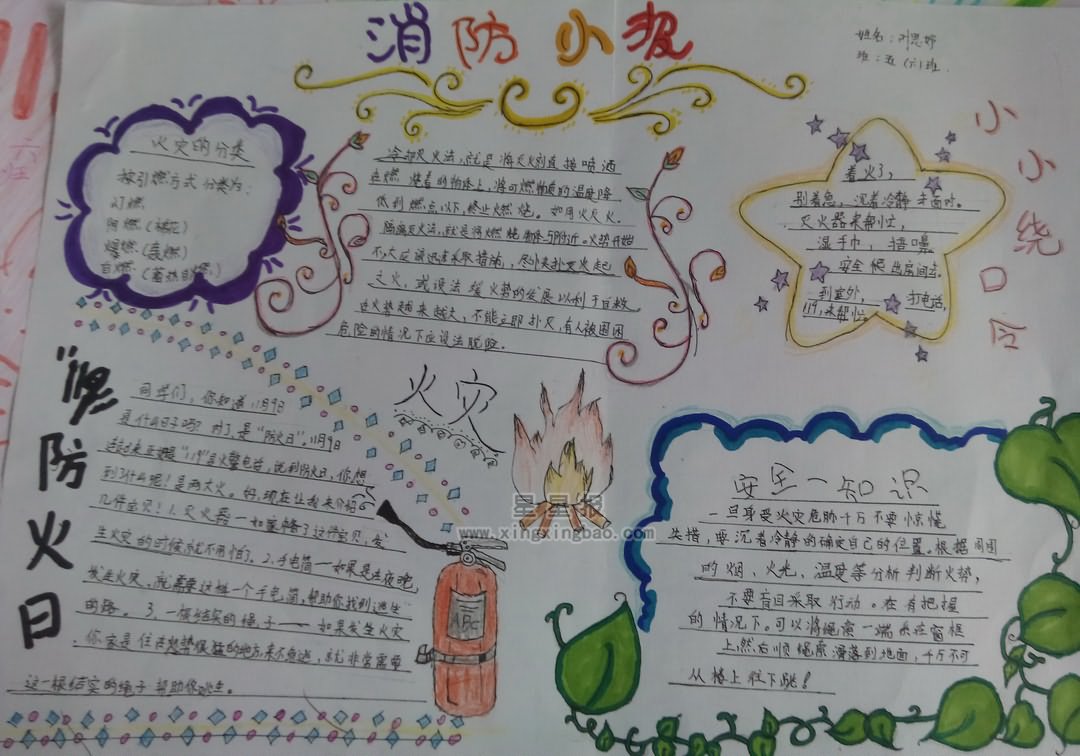 消防小报
姓名：叶思婷
班：五（六）班
火灾的分类
按引燃方式分类为：
闪燃
阴燃
爆燃
自燃
冷却灭火法，就是将灭火剂直接喷洒
在燃烧着的物体上，将可燃物质的温度降
低到燃点以下，终止燃烧。如用水灭火。
隔离灭火法，就是将燃烧物体与附近。火势开始
不大应该迅速采取措施，尽快扑灭火起
之火，或设法缓火势的发展以利于自救。
在火势越来越大，不能立即扑灭，有人被围困
危险的情况下应设法脱险。
小小绕口令
着火了，
别着急，沉着冷静来面对。
灭火器来帮忙，
湿手巾，捂嘴鼻
安全快出房间去。
到室外，打电话，
119，来帮忙。
"消防火日
同学们，你知道11月9日
是什么日子吗？对了，是"防火日"。11月9日
连起来正是"119"火警电话，说到防火日，你想
到了什么呢！是两大火。好，现在让我来介绍
几件宝贝！1.灭火器——如果有了这件宝贝，发
生火灾的时候就不用怕了。2.手电筒——如果是在夜晚
发生火灾，就需要这样一个手电筒，帮助你找到逃生
的路。3.一根结实的绳子——如果发生火灾
你家是住在
这一根结实的绳子帮助你逃生。
火灾
ABC
星星报
www.xingxingbao.com
安全一知识
一旦身受火灾危胁千万不要惊慌
失措，要沉着冷静的确定自己的位置。根据周围
的烟、火光、温度等分析判断火势，
不要盲目采取行动。在有把握
的情况下。可以将绳索一端系在窗框
上，然后顺绳索滑落到地面，千万不可
从楼上往下跳！